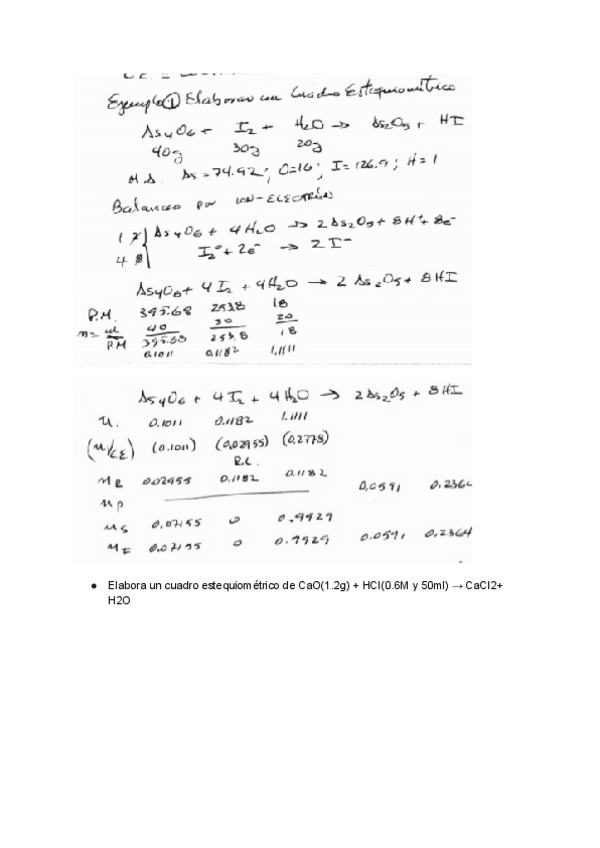 Ejemplo ① Elaborar un Cuadro Estequiométrico
As4O6 + I2 + H2O → As2O5 + HI
40g 30g 20g
M.A. As = 74.92; O=16; I=126.9; H=1
Balanceo por ION-ELECTRÓN
1 2 As4O6 + 4H2O → 2As2O5 + 8H+ + 8e-
4 8 I2° + 2e- → 2I-
As4O6 + 4I2 + 4H2O → 2As2O5 + 8HI
P.M. 395.68 253.8 18
n = m/PM 40/395.68 30/253.8 20/18
0.1011 0.1182 1.1111
As4O6 + 4I2 + 4H2O → 2As2O5 + 8HI
n. 0.1011 0.1182 1.1111
(n/CE) (0.1011) (0.02955) (0.2778)
R.L.
nR 0.02955 0.1182 0.1182
nP 0.0591 0.2364
nS 0.07155 0 0.9929
nF 0.07155 0 0.9929 0.0591 0.2364
● Elabora un cuadro estequiométrico de CaO(1.2g) + HCl(0.6M y 50ml) → CaCl2+
H2O